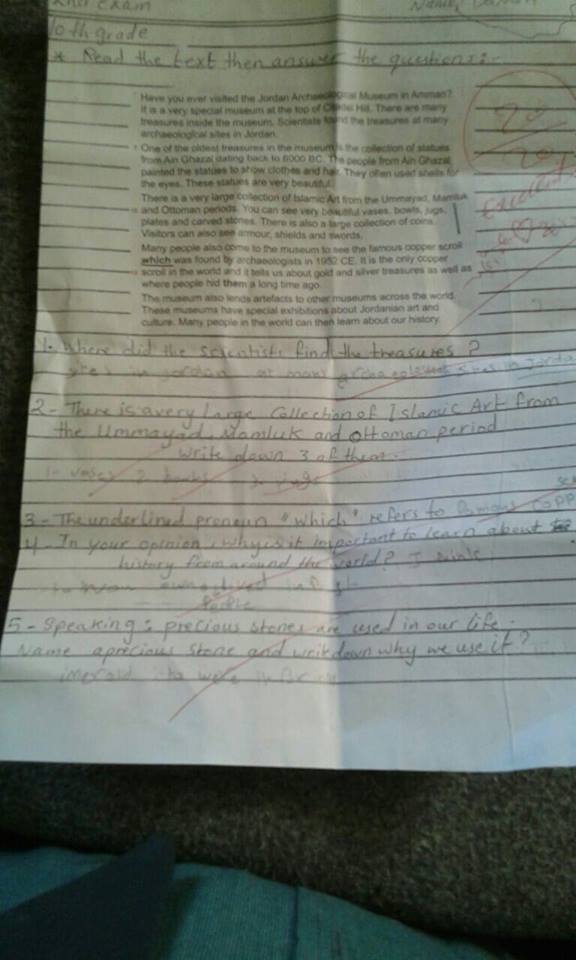 2nd exam
Name:
10th grade
* Read the text then answer the questions:-
Have you ever visited the Jordan Archaeological Museum in Amman?
It is a very special museum at the top of Citadel Hill. There are many
treasures inside the museum. Scientists found the treasures at many
archaeological sites in Jordan.
One of the oldest treasures in the museum is the collection of statues
from Ain Ghazal dating back to 6000 BC. The people from Ain Ghazal
painted the statues to show clothes and hair. They often used shells for
the eyes. These statues are very beautiful.
There is a very large collection of Islamic Art from the Ummayad, Mamluk
and Ottoman periods. You can see very beautiful vases, bowls, jugs,
plates and carved stones. There is also a large collection of coins.
Visitors can also see armour, shields and swords.
Many people also come to the museum to see the famous copper scroll
which was found by archaeologists in 1952 CE. It is the only copper
scroll in the world and it tells us about gold and silver treasures as well as
where people hid them a long time ago.
The museum also lends artefacts to other museums across the world.
These museums have special exhibitions about Jordanian art and
culture. Many people in the world can then learn about our history.
20
20
Excellent
1- Where did the scientists find the treasures?
sites in jordan at many sites in Jordan
2- There is a very large Collection of Islamic Art from
the Ummayad, Mamluk and Ottoman period
write down 3 of them.
1- vases 2 3- jugs
3- The underlined pronoun "which" refers to
4- In your opinion, why is it important to learn about
history from around the world? I
lived in
People
5- Speaking: precious stones are used in our life.
Name a precious stone and write down why we use it?